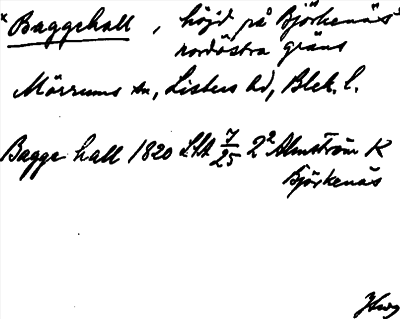 × Baggehall, höjd på Björkenäs'
nordöstra gräns
Mörrums sn, Listers hd, Blek. l.
Bagge hall 1820 LSA 7/25 2² Almström K
Björkenäs